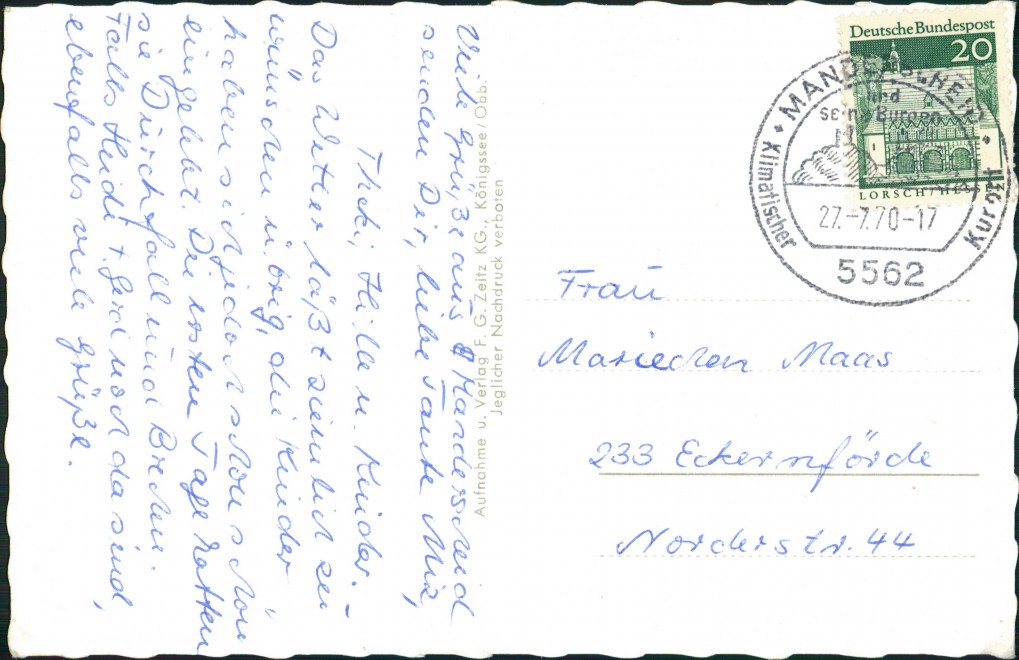 Viele Grüße aus Manderscheid
senden Dir, liebe Tante Mia,
Theki, Hilla u. Kinder. –
Das Wetter läßt ziemlich zu
wünschen übrig, die Kinder
haben sich jedoch schon schön
eingelebt. Die ersten Tage hatten
sie Durchfall und Brechen.
Falls Heidi + Gerd noch da sind,
ebenfalls viele Grüße.
Aufnahme u. Verlag F. G. Zeitz KG., Königssee/Obb.
Jeglicher Nachdruck verboten
Deutsche Bundespost
20
LORSCH/HESSEN
MANDERSCHEID
und
seine Burgen
Klimatischer
Kurort
27.-7.70-17
5562
Frau
Mariechen Maas
233 Eckernförde
Norderstr. 44